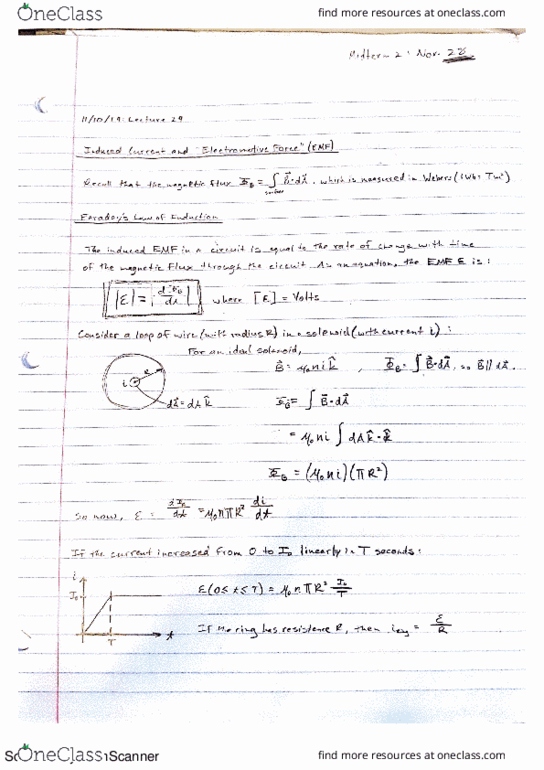 OneClass find more resources at oneclass.com
Midterm 2: Nov. 28
11/10/19: Lecture 29
Induced Current and "Electromotive Force" (EMF)
Recall that the magnetic flux Φ_B = ∫ B⃗·dA⃗, which is measured in Webers (1Wb = Tm²)
surface
Faraday's Law of Induction
The induced EMF in a circuit is equal to the rate of change with time
of the magnetic flux through the circuit. As an equation, the EMF ε is:
|ε| = |dΦ_B/dt| where [ε] = Volts
Consider a loop of wire (with radius R) in a solenoid (with current i):
For an ideal solenoid,
B⃗ = μ₀ni k̂, Φ_B = ∫ B⃗·dA⃗, so B⃗ ∥ dA⃗.
i R
dA⃗ = dA k̂
Φ_B = ∫ B⃗·dA⃗
= μ₀ni ∫ dA k̂·k̂
Φ_B = (μ₀ni)(πR²)
So now, ε = dΦ_B/dt = μ₀nπR² di/dt
If the current increased from 0 to I₀ linearly in T seconds:
i
I₀
T t
ε(0≤t≤T) = μ₀nπR² I₀/T
If the ring has resistance R, then = ε/R
OneClass Scanner find more resources at oneclass.com